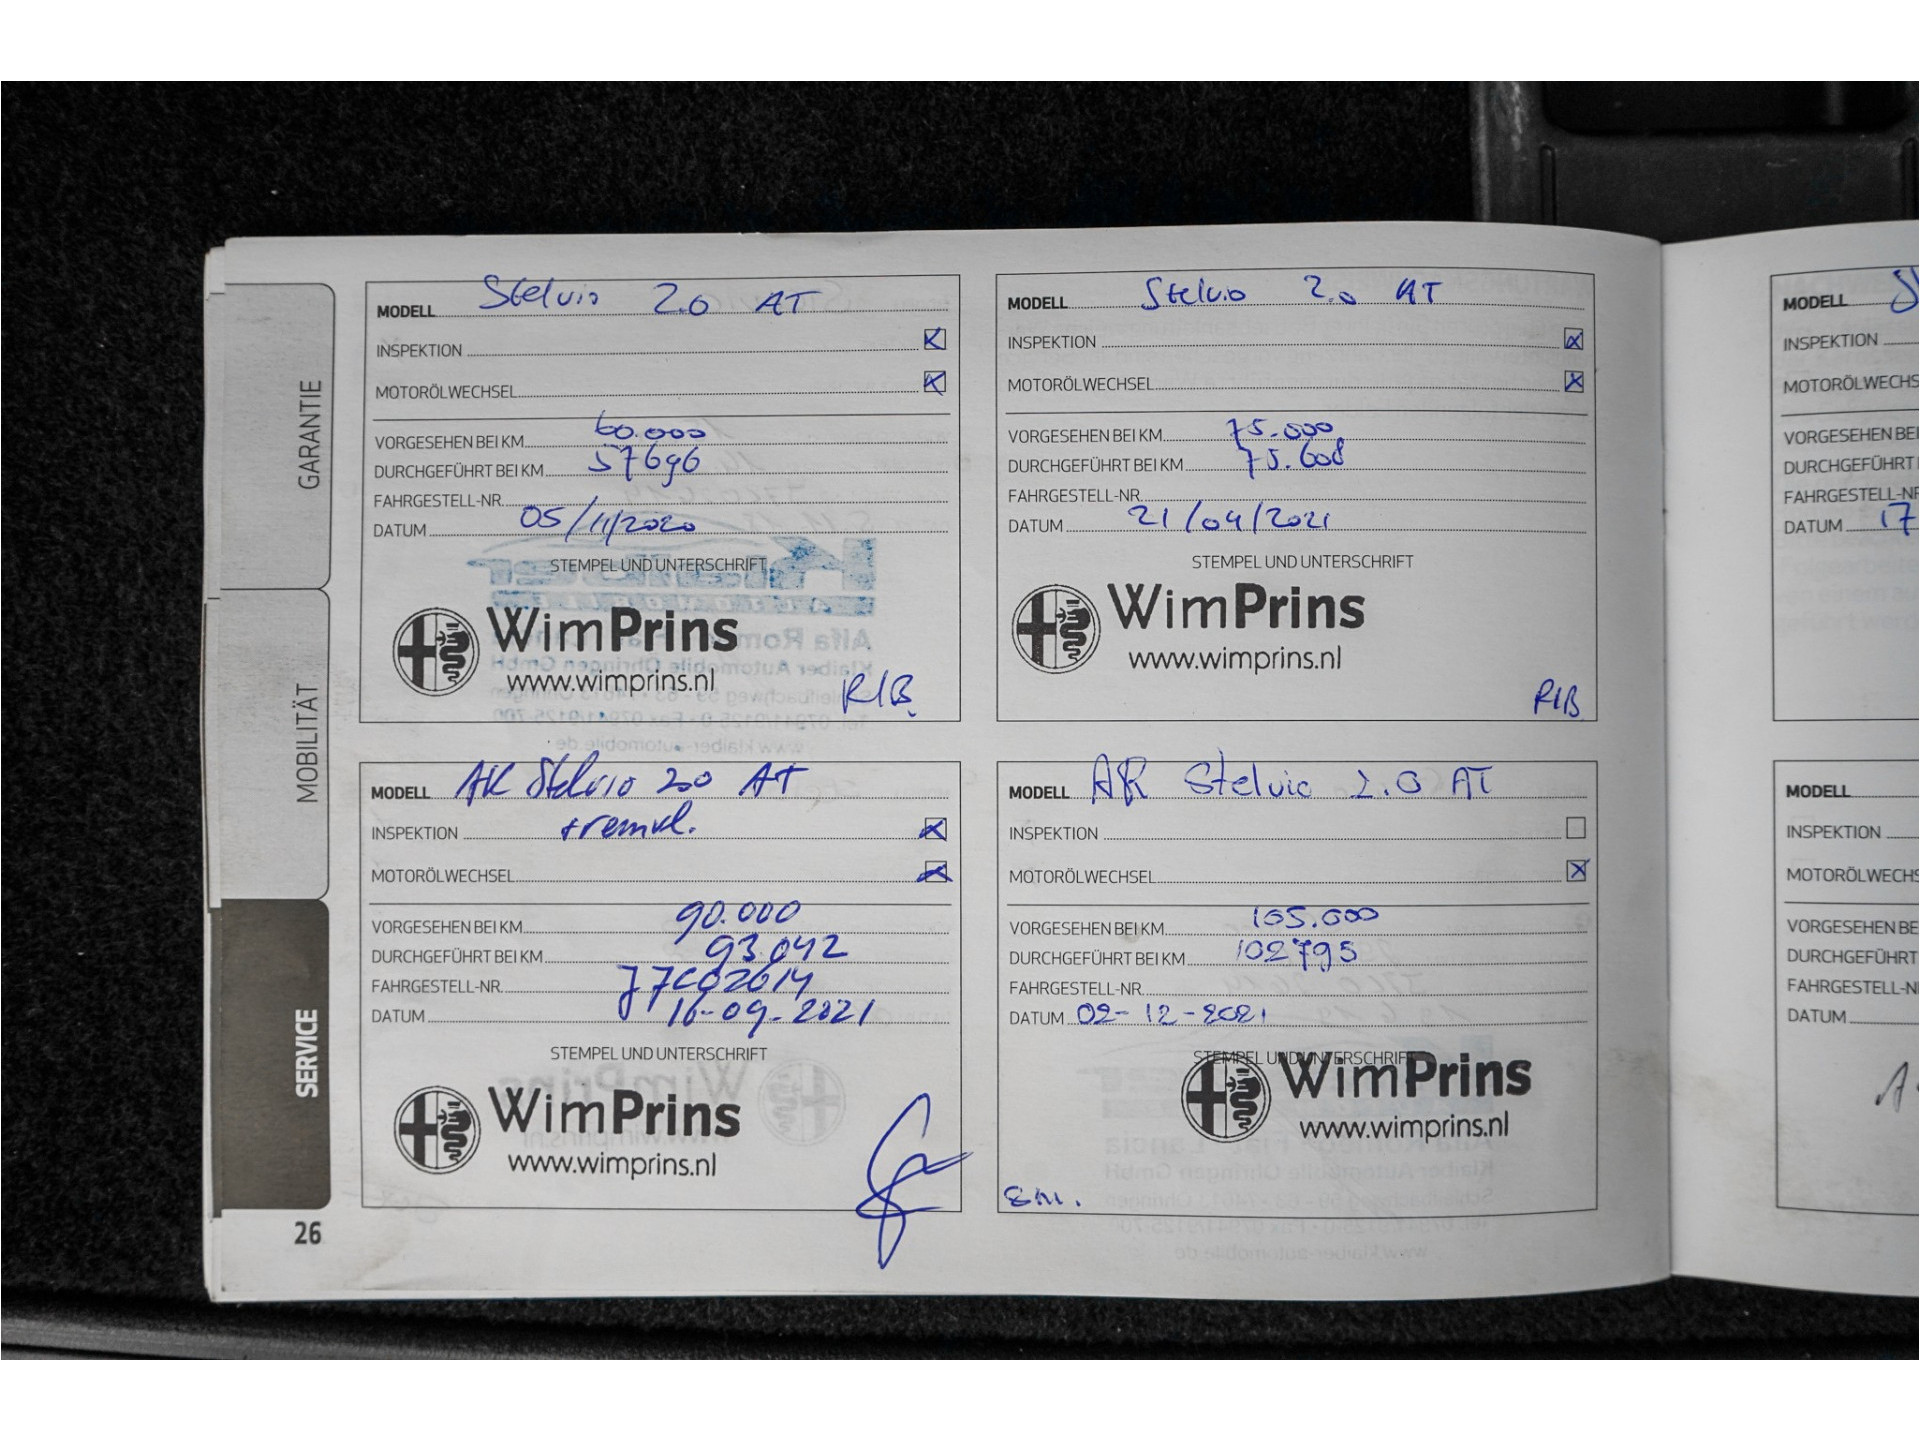 GARANTIE
MOBILITÄT
SERVICE
26
MODELL Stelvio 2.0 AT
INSPEKTION
MOTORÖLWECHSEL
VORGESEHEN BEI KM 60.000
DURCHGEFÜHRT BEI KM 57696
FAHRGESTELL-NR.
DATUM 05/11/2020
STEMPEL UND UNTERSCHRIFT
WimPrins
www.wimprins.nl
RIB
MODELL Stelvio 2.0 AT
INSPEKTION
MOTORÖLWECHSEL
VORGESEHEN BEI KM 75.000
DURCHGEFÜHRT BEI KM 75.608
FAHRGESTELL-NR.
DATUM 21/04/2021
STEMPEL UND UNTERSCHRIFT
WimPrins
www.wimprins.nl
RIB
MODELL AR Stelvio 200 AT
INSPEKTION + remvl.
MOTORÖLWECHSEL
VORGESEHEN BEI KM 90.000
DURCHGEFÜHRT BEI KM 93.042
FAHRGESTELL-NR. J7C02614
DATUM 16-09-2021
STEMPEL UND UNTERSCHRIFT
WimPrins
www.wimprins.nl
MODELL AR Stelvio 2.0 AT
INSPEKTION
MOTORÖLWECHSEL
VORGESEHEN BEI KM 105.000
DURCHGEFÜHRT BEI KM 102795
FAHRGESTELL-NR.
DATUM 02-12-2021
STEMPEL UND UNTERSCHRIFT
WimPrins
www.wimprins.nl
MODELL
INSPEKTION
MOTORÖLWECHS
VORGESEHEN BEI
DURCHGEFÜHRT
FAHRGESTELL-NR
DATUM 17
MODELL
INSPEKTION
MOTORÖLWECHS
VORGESEHEN BE
DURCHGEFÜHRT
FAHRGESTELL-N
DATUM